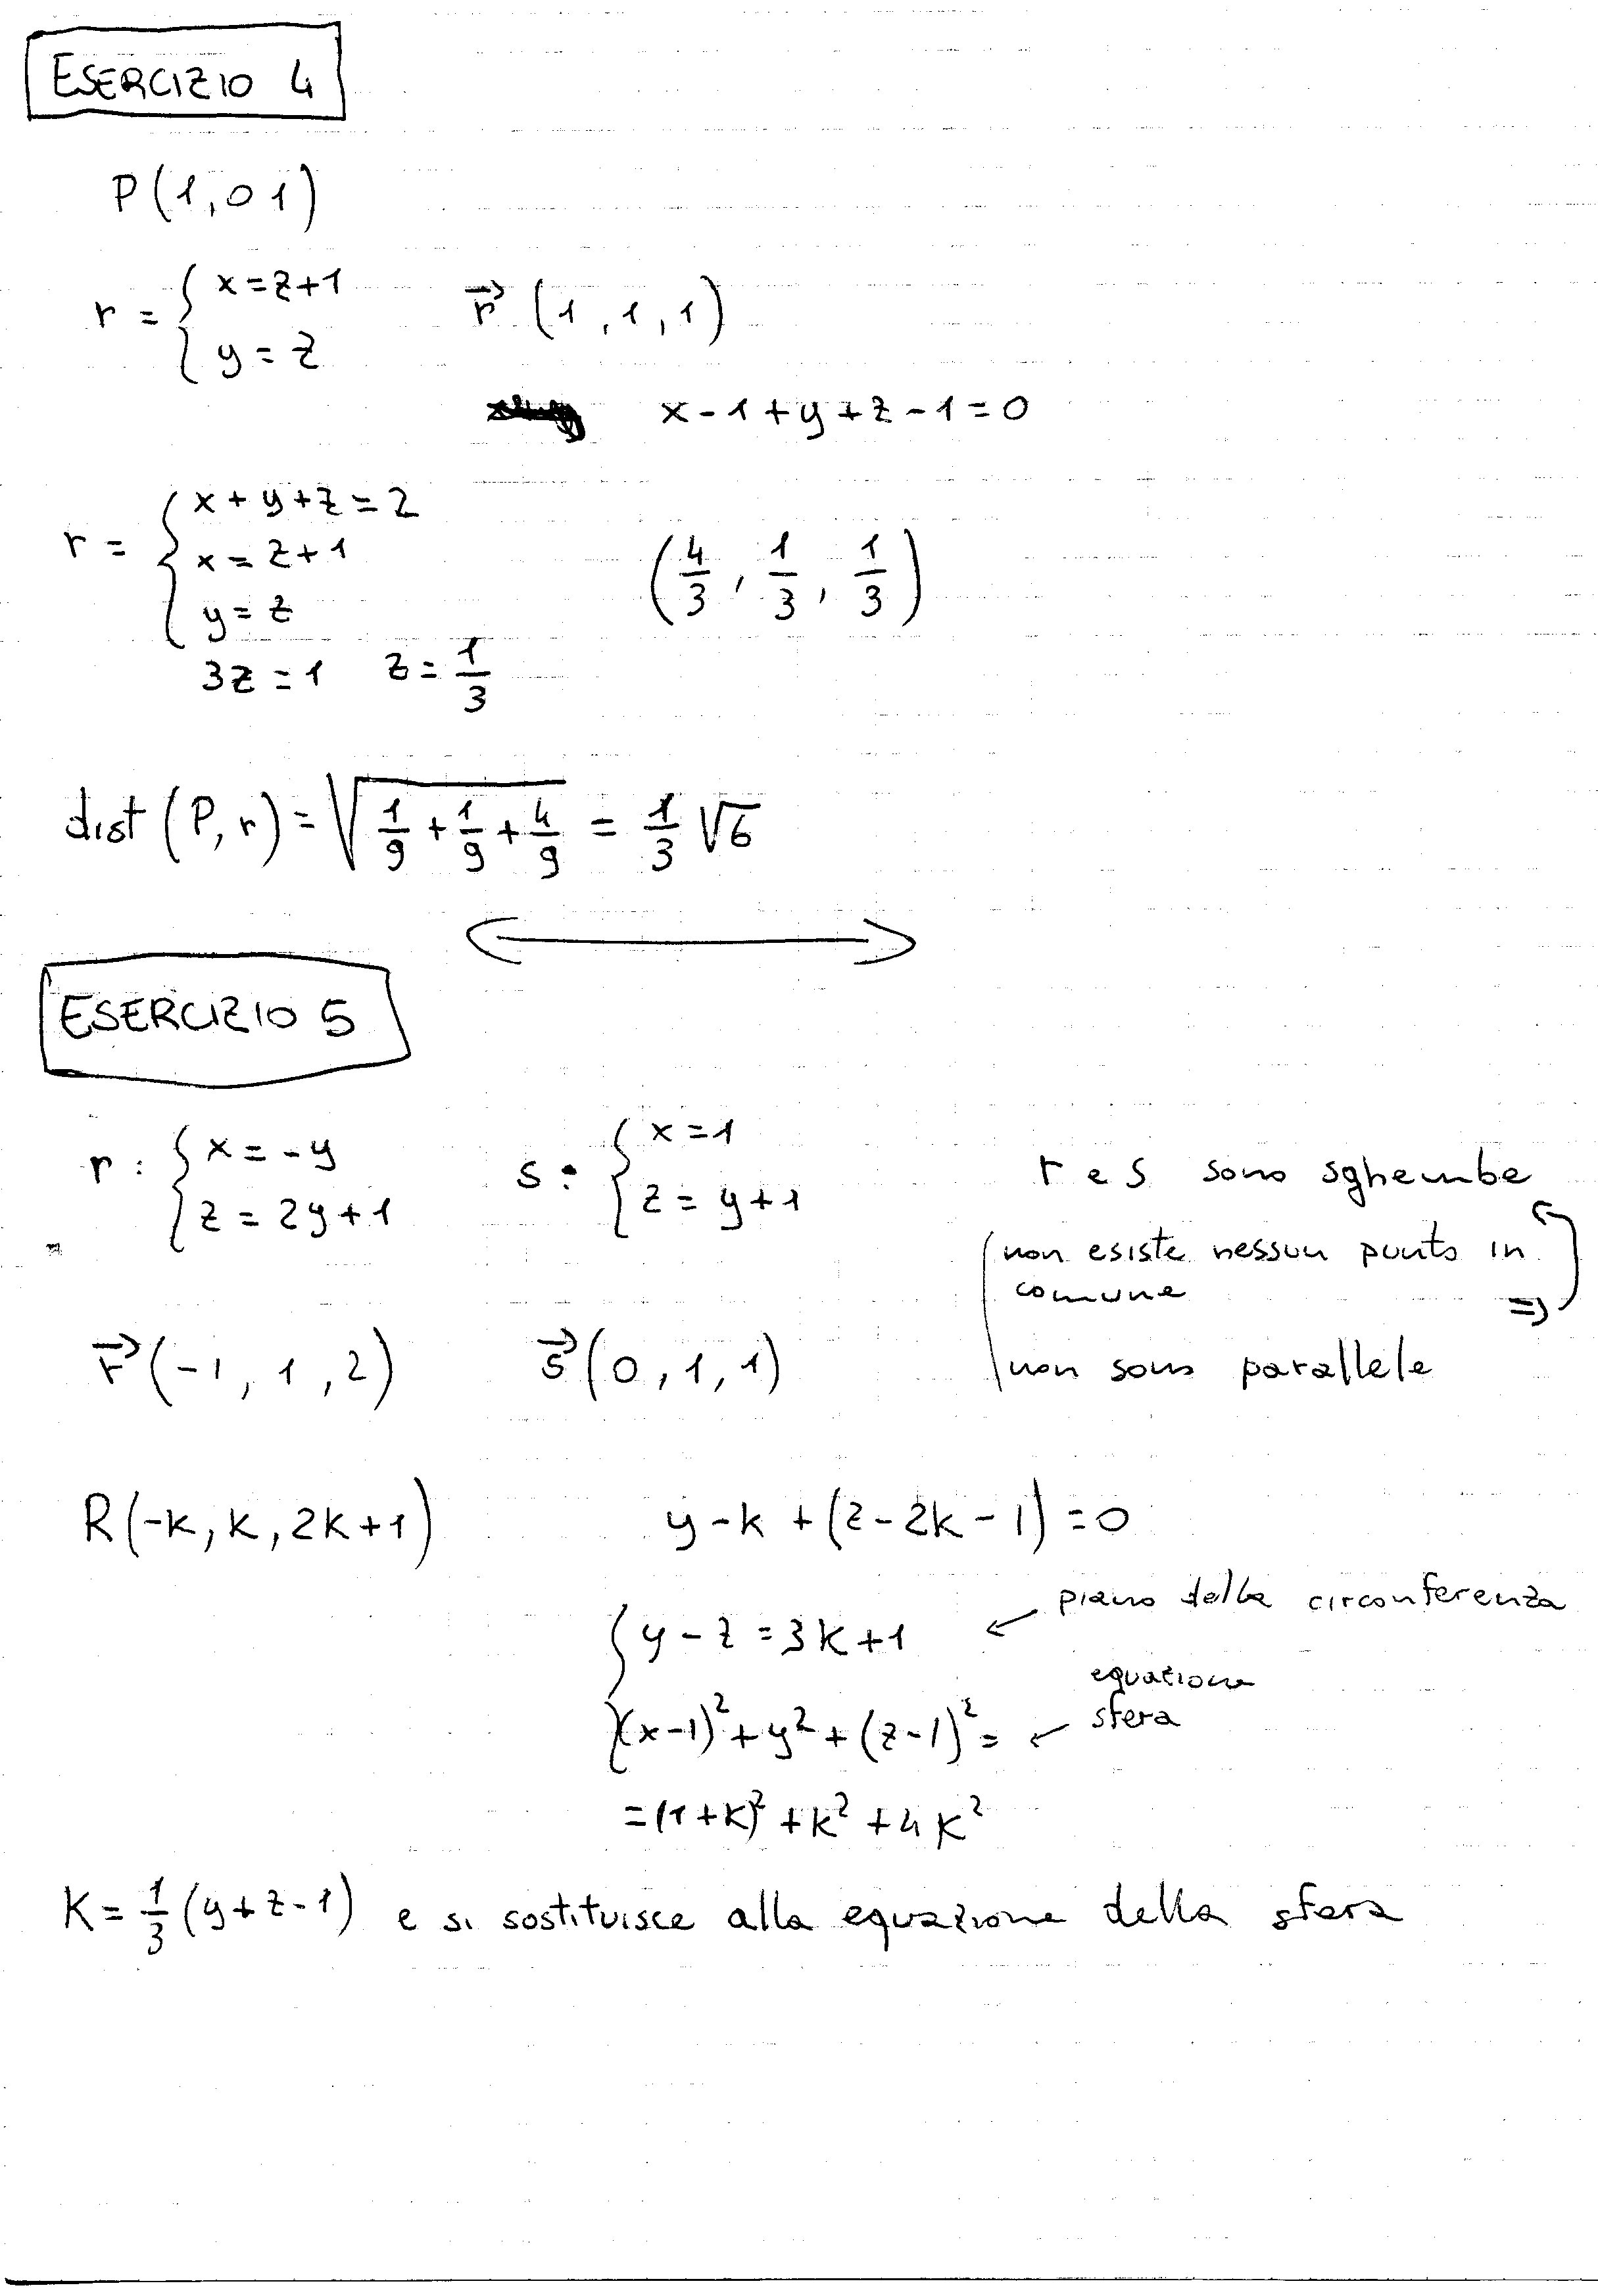 ESERCIZIO 4
P(1,0 1)
r = { x = z+1
y = z
r⃗ (1, 1, 1)
x - 1 + y + z - 1 = 0
r = { x + y + z = 2
x = z + 1
y = z
(4/3, 1/3, 1/3)
3z = 1 z = 1/3
dist (P, r) = √(1/9 + 1/9 + 4/9) = 1/3 √6
ESERCIZIO 5
r : { x = -y
z = 2y + 1
s : { x = 1
z = y + 1
r e s sono sghembe
non esiste nessun punto in
comune =>
non sono parallele
r⃗ (-1, 1, 2) s⃗ (0, 1, 1)
R(-k, k, 2k+1) y - k + (z - 2k - 1) = 0
{ y - z = 3k + 1 ← piano della circonferenza
(x-1)² + y² + (z-1)² = ← equazione
sfera
= (1+k)² + k² + 4k²
K = 1/3 (y + z - 1) e si sostituisce alla equazione della sfera